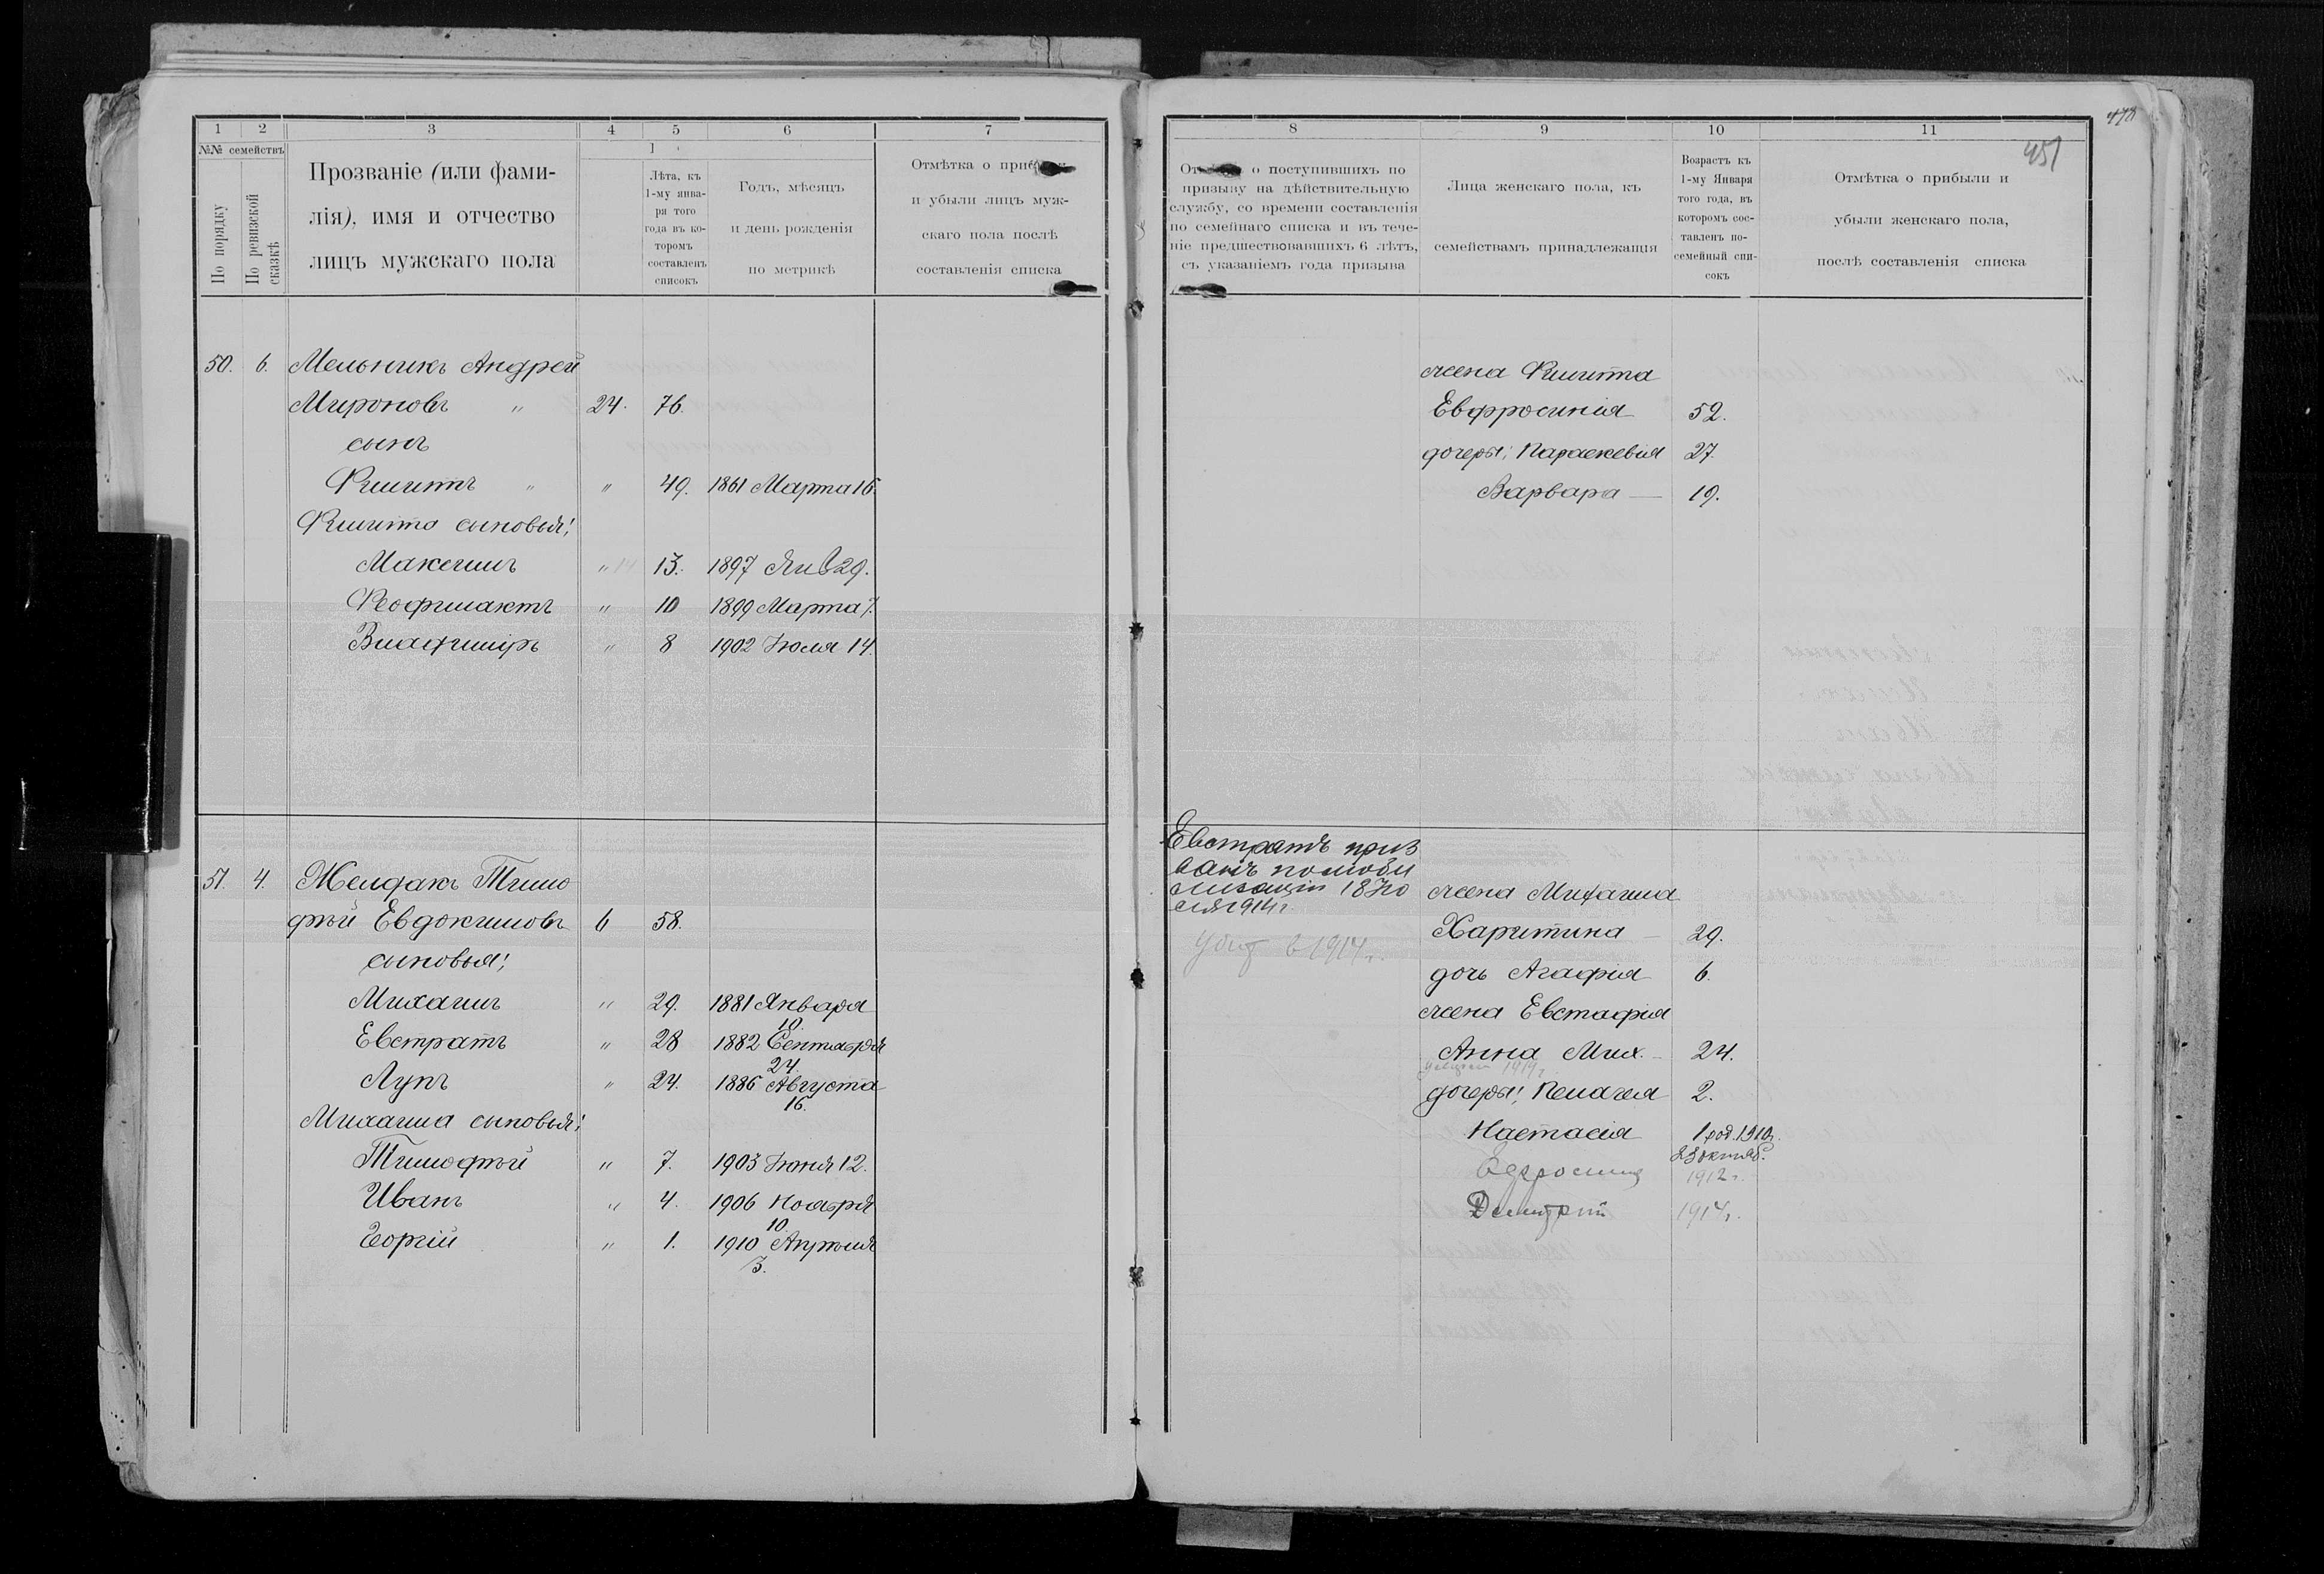 478
451
1 2 3 4 5 6 7
№№ семействъ
По порядку
По ревизской сказкѣ
Прозваніе (или фами-
лія), имя и отчество
лицъ мужскаго пола
1
Лѣта, къ
1-му янва-
ря того
года въ ко-
торомъ
составленъ
списокъ
Годъ, мѣсяцъ
и день рожденія
по метрикѣ
Отмѣтка о
и убыли лицъ муж-
скаго пола послѣ
составленія списка
50. 6. Мельникъ Андрей
Мироновъ " 24. 76.
сынъ
Филиппъ " " 49. 1861 Марта 16.
Филиппа сыновья:
Максимъ " 13. 1897 Янв 29.
Феофилактъ " 10 1899 Марта 7.
Владиміръ " 8 1902 Іюля 14.
51. 4. Желдакъ Тимо
фѣй Евдокимовъ 6 58.
сыновья:
Михаилъ " 29. 1881 Января
10.
Евстратъ " 28 1882 Сентября
24.
Лупъ " 24. 1886 Августа
16.
Михаила сыновья:
Тимофѣй " 7. 1903 Іюня 12.
Иванъ " 4. 1906 Ноября
10.
Георгій " 1. 1910 Апрѣля
3.
8 9 10 11
о поступившихъ по
призыву на дѣйствительную
службу, со времени составленія
по семейнаго списка и въ тече-
ніе предшествовавшихъ 6 лѣтъ,
съ указаніемъ года призыва
Лица женскаго пола, къ
семействамъ принадлежащія
Возрастъ къ
1-му Января
того года, въ
которомъ сос-
тавленъ по-
семейный спи-
сокъ
Отмѣтка о прибыли и
убыли женскаго пола,
послѣ составленія списка
жена Филиппа
Евфросинія 52.
дочеры: Параскевія 27.
Варвара — 19.
Евстратъ приз
ванъ по моби
лизаціи 18 Ію
ля 1914 г.
убит в 1914 г.
жена Михаила
Харитина — 29.
дочь Агафія 6.
жена Евстафія
Анна Мих. — 24.
1914 г.
дочеры: Пелагея 2.
Настасія 1 род. 1910 г.
23 октяб.
Ефросинія 1912 г.
Дмитрій 1914 г.